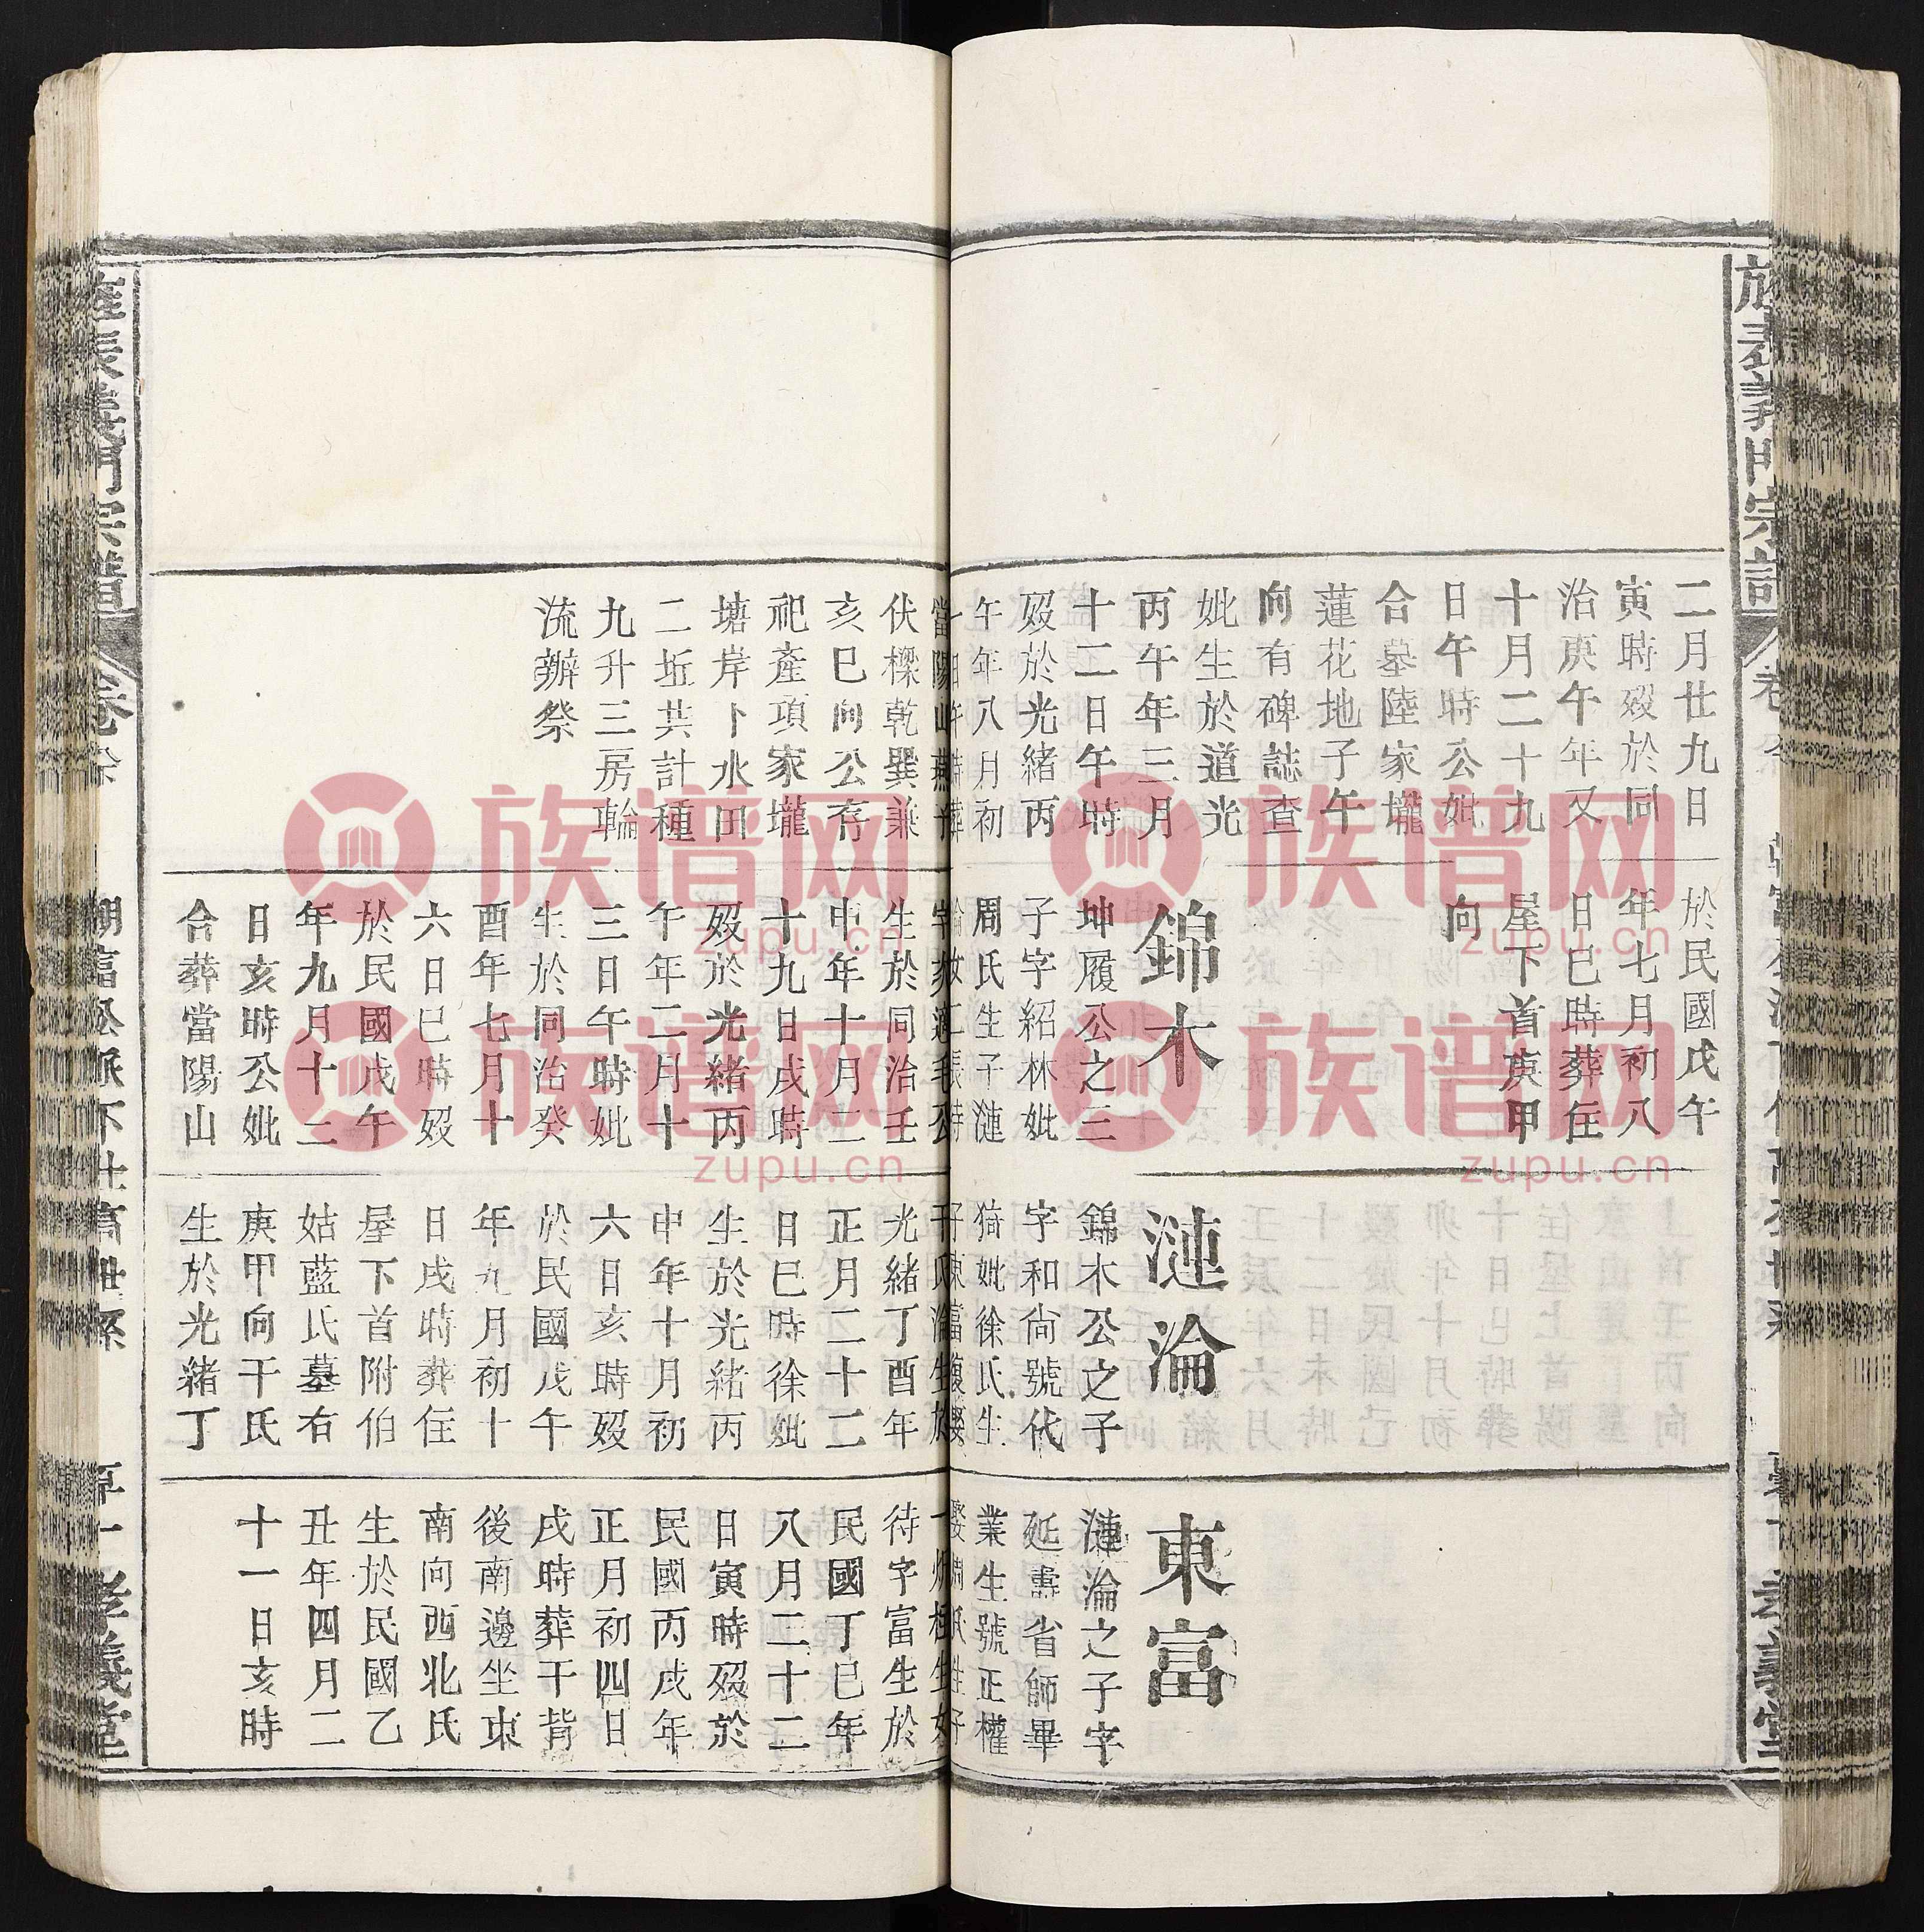 二月廿九日
寅時歿於同
治庚午年又
十月二十九
日午時公妣
合墓陸家壠
蓮花地子午
向有碑誌查
妣生於道光
丙午年三月
十二日午時
歿於光緒丙
午年八月初
當陽山燕子
伏樑乾巽兼
亥巳向公存
祀產項家壠
塘岸卜水田
二坵共計種
九升三房輪
流辦祭
於民國戊午
年七月初八
日巳時葬住
屋下首庚甲
向
錦木
坤履公之三
子字紹林妣
周氏生子漣
生於同治壬
申年十月二
十九日戌時
歿於光緒丙
午年二月十
三日午時妣
生於同治癸
酉年七月十
六日巳時歿
於民國戊午
年九月十二
日亥時公妣
合葬當陽山
漣淪
錦木公之子
字和尙號代
猗妣徐氏生
光緒丁酉年
正月二十二
日巳時徐妣
生於光緒丙
申年十月初
六日亥時歿
於民國戊午
年九月初十
日戌時葬住
屋下首附伯
姑藍氏墓右
庚甲向干氏
生於光緒丁
東富
漣淪之子字
延壽省師畢
業生號正權
待字富生於
民國丁巳年
八月二十二
日寅時歿於
民國丙戌年
正月初四日
戌時葬干背
後南邊坐東
南向西北氏
生於民國乙
丑年四月二
十一日亥時
族譜网
zupu.cn
族譜网
zupu.cn
族譜网
zupu.cn
族譜网
zupu.cn